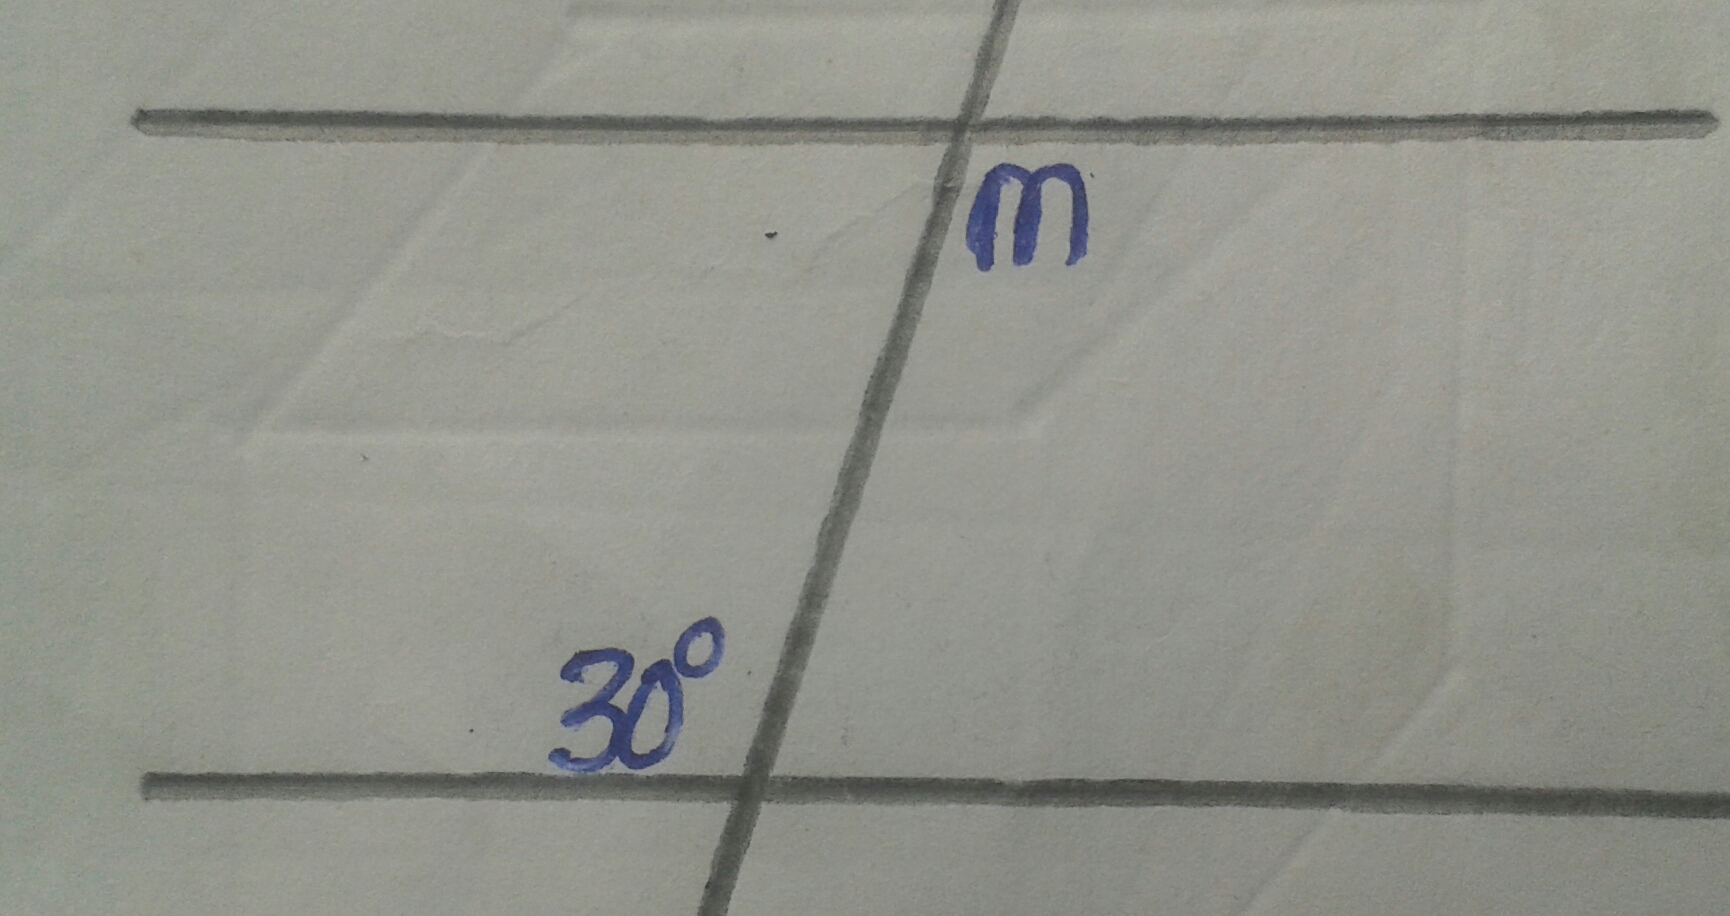 m
30°